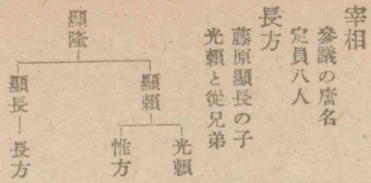 宰相
參議の唐名
定員八人
長方
藤原顯長の子
光賴と從兄弟
顯隆
顯賴
光賴
惟方
顯長
長方